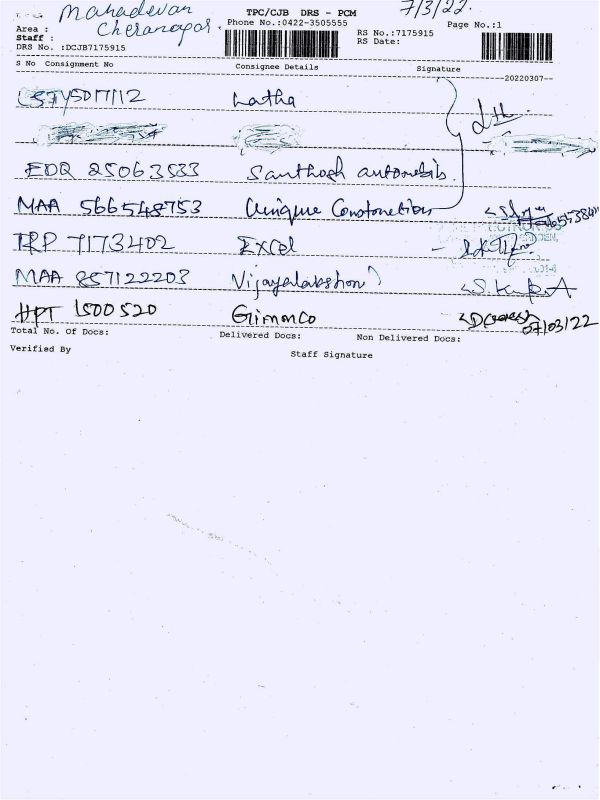 Mahadevan TPC/CJB DRS - PCM 7/3/22.
Area : Cheranagar. Phone No.:0422-3505555 Page No.:1
Staff : RS No.:7175915
DRS No. :DCJB7175915 RS Date:
S No Consignment No Consignee Details Signature
--20220307--
Latha
EDQ 25063533 Santhosh
MAA 566548753 Unique
TRP 7173402 Excel
MAA 857122203
HPT 1500520 Gimmco
07/03/22
Total No. Of Docs: Delivered Docs: Non Delivered Docs:
Verified By Staff Signature